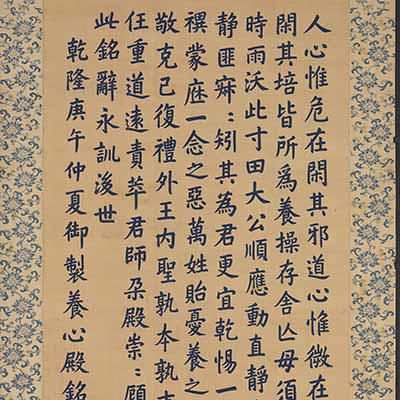 人心惟危在閑其邪道心惟微在
閑其培皆所為養操存舍亡毋須
時雨沃此寸田大公順應動直静
静匪寐〻矧其為君更宜乾惕一
禩蒙庥一念之惡萬姓貽憂養之
敬克己復禮外王内聖孰本孰
任重道遠責萃君師朶殿崇〻顧
此銘辭永訓後世
乾隆庚午仲夏御製養心殿銘